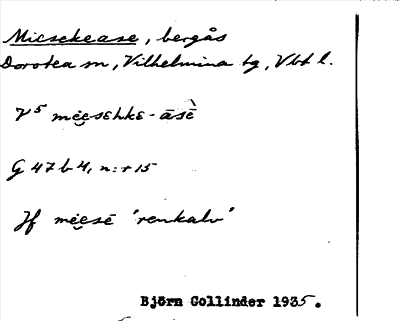 Micsekease, bergås
Dorotea sn, Vilhelmina tg, Vbt l.
V⁵ mi̮e̮sɛhkɛ-āsɛ̄̀
G 47 b 4, n:r 15
Jf mi̮e̮sē 'renkalv'
Björn Collinder 1935.